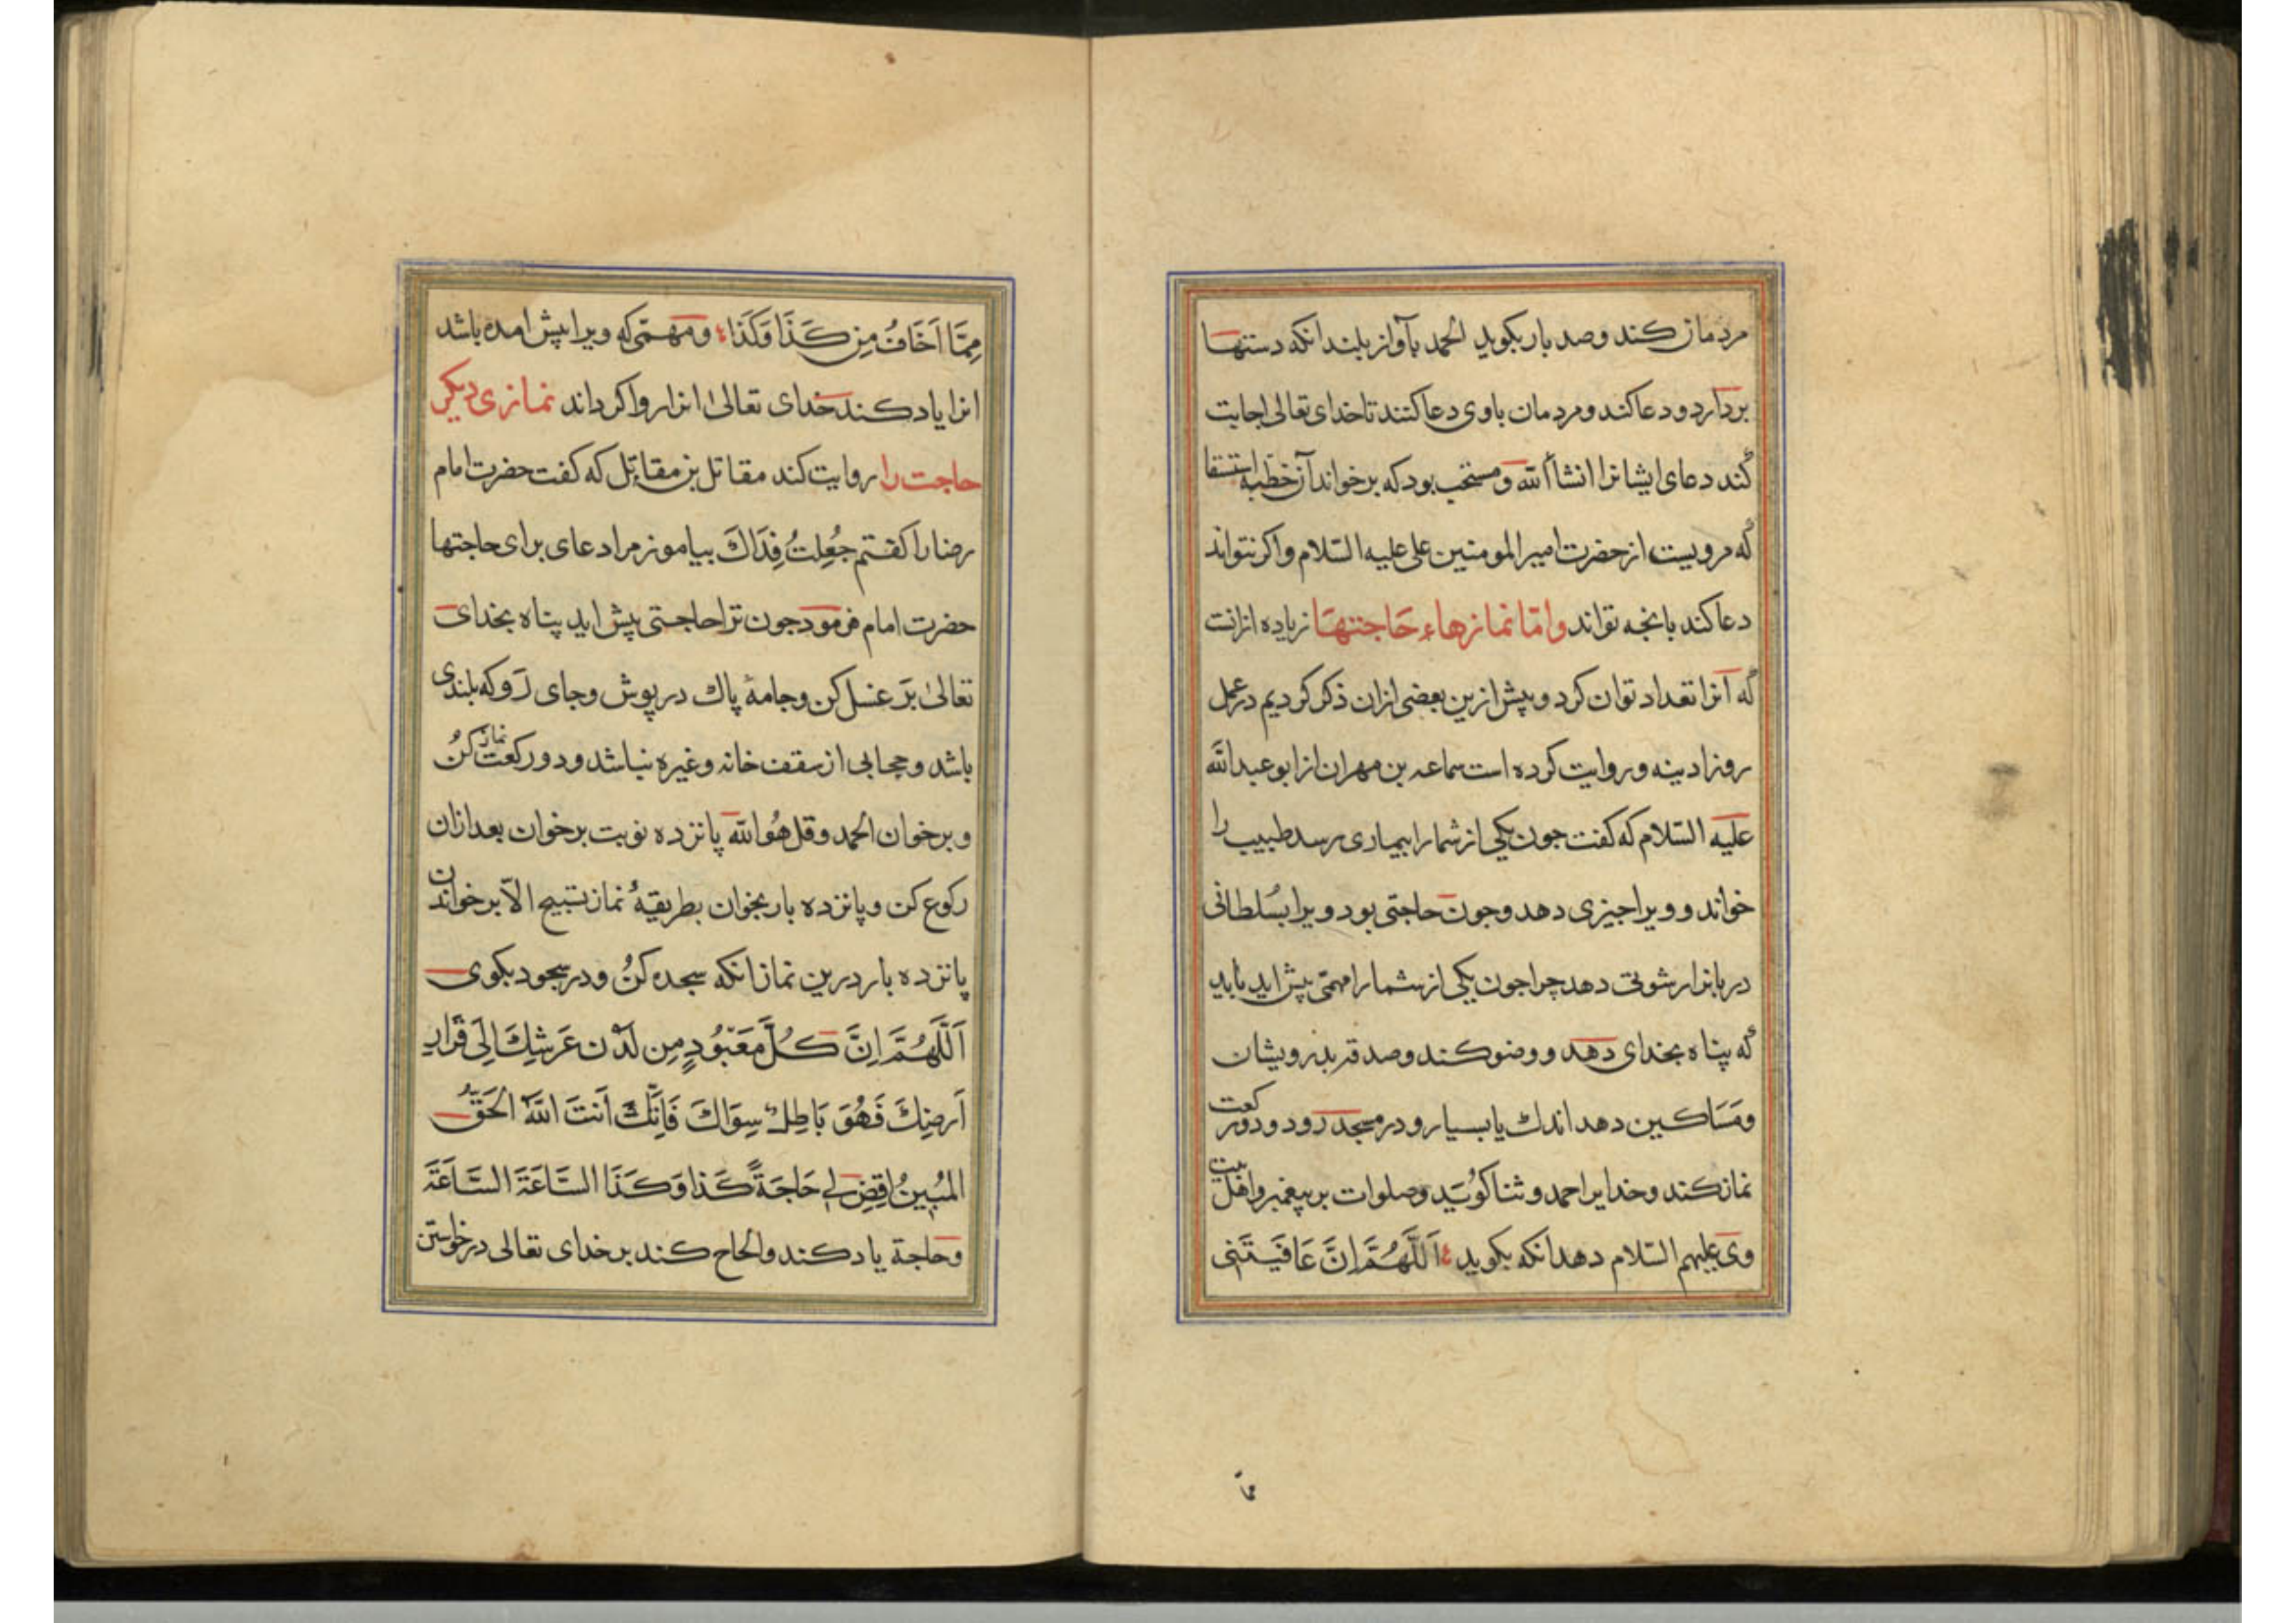 مردمان کند وصد بار بکوید الحمد بآواز بلند انکه دستها
بردارد و دعا کند و مردمان باوی دعا کنند تا خدای تعالی اجابت
کند دعای ایشانرا انشأ الله و مستحب بود که برخواند آن خطبه استسقا
که مرویست از حضرت امیر المومنین علی علیه السّلام واکر نتواند
دعا کند بانجه تواند وامّا نمازهاء حَاجتهَا زیاده ازانت
که آنرا تعداد توان کرد و پیش ازین بعضی ازان ذکر کردیم در عمل
روز ادینه و روایت کرده است سماعه بن مهران از ابو عبد الله
علیه السّلام که کفت جون یکی از شما را بیماری رسد طبیب را
خواند و ویرا جیزی دهد وجون حاجتی بود ویرا بسُلطانی
دربانرا رشوتی دهد چرا جون یکی از شما را مهمّی پیش اید باید
که پناه بخدای دهد و وضو کند وصدقه بدرویشان
ومَسَاکین دهد اندك یا بسیار و در مسجد رود و دو رکعت
نماز کند وخدایرا حمد و ثنا کوید وصلوات بر پیغمبر واهل بیت
وی علیهم السّلام دهد انکه بکوید اَللَّهُمَّ اِنَّ عَافَیتَنِی
مّا
مِمَّا اَخَافُ مِن کَذَا وَکَذَا ومهمّی که ویرا پیش امده باشد
انرا یاد کند خدای تعالیٰ انرا روا کرداند نمازی دیکر
حاجت را روایت کند مقاتل بن مقاتل که کفت حضرت امام
رضا را کفتم جُعِلتُ فِدَاكَ بیاموز مرا دعای برای حاجتها
حضرت امام فرمود جون ترا حاجتی پیش اید پناه بخدای
تعالیٰ بَر غسل کن وجامهٔ پاك درپوش وجای رَو که بلندی
باشد وحجابی از سقف خانه وغیره نباشد و دو رکعت نماز کنُ
وبرخوان الحمد وقل هُوَ الله پانزده نوبت برخوان بعد ازان
رکوع کن وپانزده بار بخوان بطریقهٔ نماز تسبیح الّا برخواندن
پانزده بار درین نماز انکه سجده کنُ ودر سجود بکوی
اَللَّهُمَّ اِنَّ کُلَّ مَعْبُودٍ مِن لَدُن عَرشِكَ اِلَی قَرَارِ
اَرضِكَ فَهُوَ بَاطِلٌ سِوَاكَ فَاِنَّكَ اَنتَ اللهُ الحَقُّ
المُبِینُ اِقضِ لِی حَاجَةً کَذَا وَکَذَا السَّاعَةَ السَّاعَةَ
وحاجة یاد کند والحاح کند بر خدای تعالی درخواستن